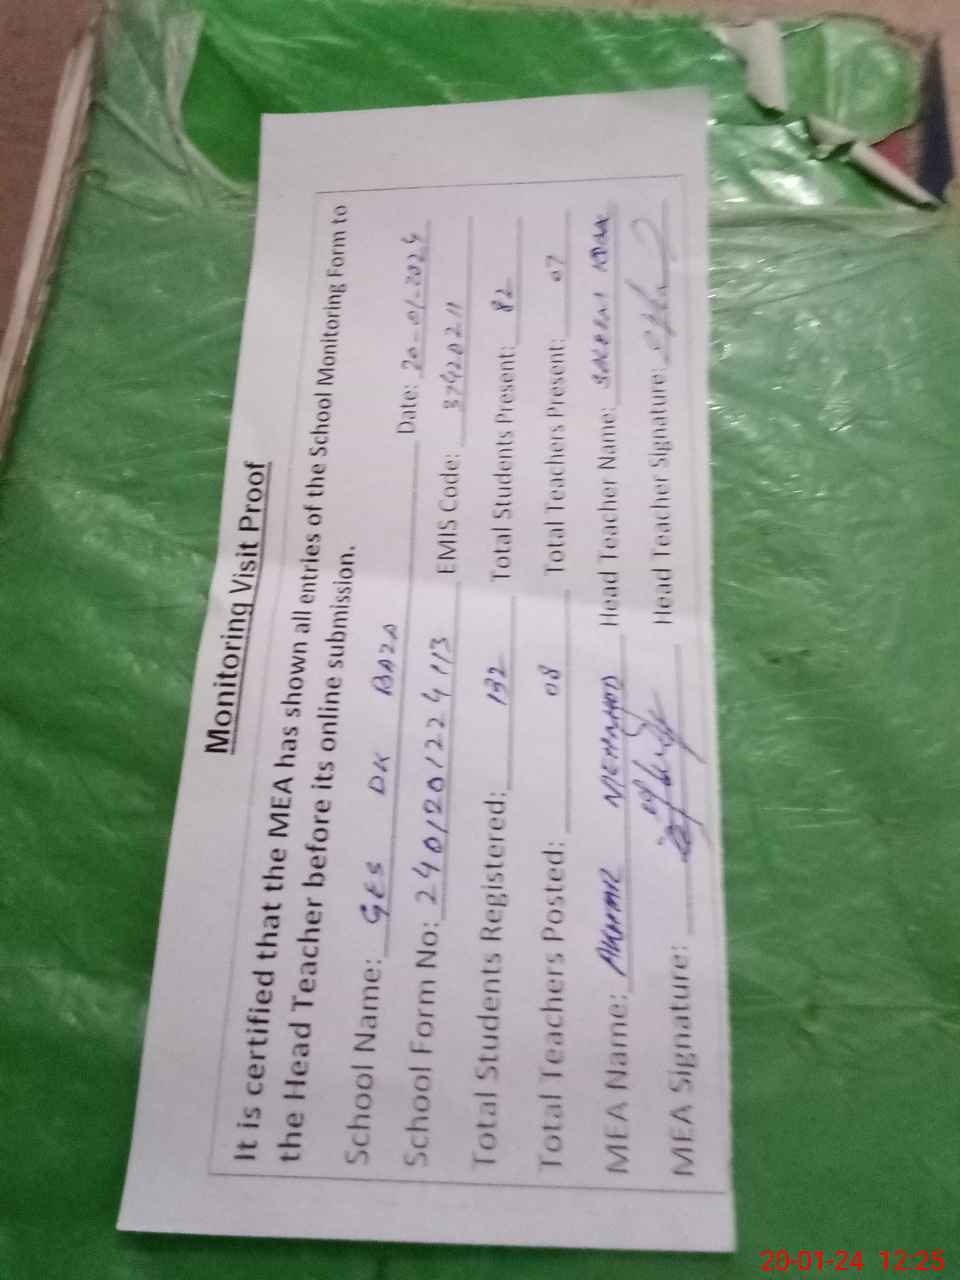 Monitoring Visit Proof
It is certified that the MEA has shown all entries of the School Monitoring Form to
the Head Teacher before its online submission.
School Name: GES DK BAZA Date: 20-01-2024
School Form No: 2401201224113 EMIS Code: 37420211
Total Students Registered: 132 Total Students Present: 82
Total Teachers Posted: 08 Total Teachers Present: 07
MEA Name: MEHMOOD Head Teacher Name:
MEA Signature: Head Teacher Signature:
20-01-24 12:25